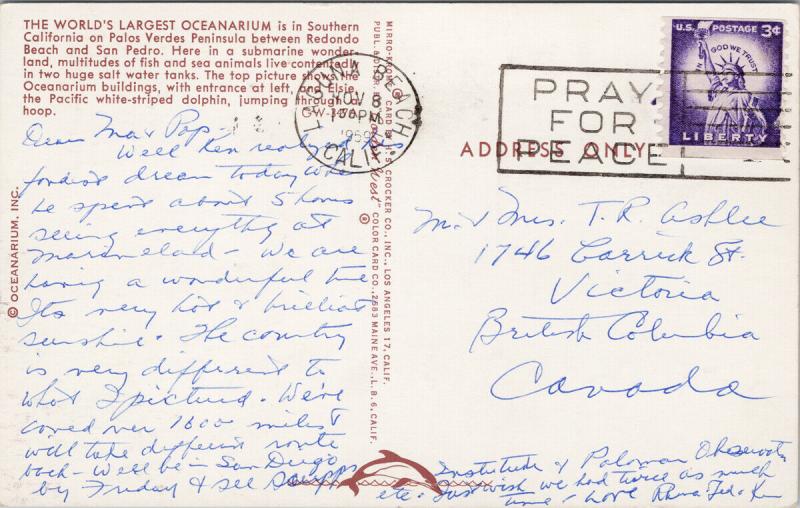 THE WORLD'S LARGEST OCEANARIUM is in Southern
California on Palos Verdes Peninsula between Redondo
Beach and San Pedro. Here in a submarine wonder-
land, multitudes of fish and sea animals live contented
in two huge salt water tanks. The top picture shows the
Oceanarium buildings, with entrance at left, and Elsie,
the Pacific white-striped dolphin, jumping through
hoop.
GW-3476
Dear Ma & Pop -
Well Ken realized his
fondest dream today when
he spent about 5 hours
seeing everything at
Marineland - We are
having a wonderful time
Its very hot & brilliant
sunshine. The country
is very different to
what I pictured. We've
covered over 1600 miles &
will take different route
back - Will be in San Diego
by Friday & see Scripps
Institute & Palomar Observatory
etc. Just wish we had twice as much
time - Love Rhona Ted & Ken
© OCEANARIUM, INC.
MIRRO-KROME ® CARD BY H. S. CROCKER CO., INC., LOS ANGELES 17, CALIF.
COLOR CARD CO., 2683 MAINE AVE., L. B. 6, CALIF.
BEACH
NOV 8
130PM
1959
CALIF.
PRAY
FOR
PEACE
U.S. POSTAGE 3¢
IN GOD WE TRUST
LIBERTY
ADDRESS ONLY
Mr & Mrs. T. R. Ashlee
1746 Carrick St.
Victoria
British Columbia
Canada